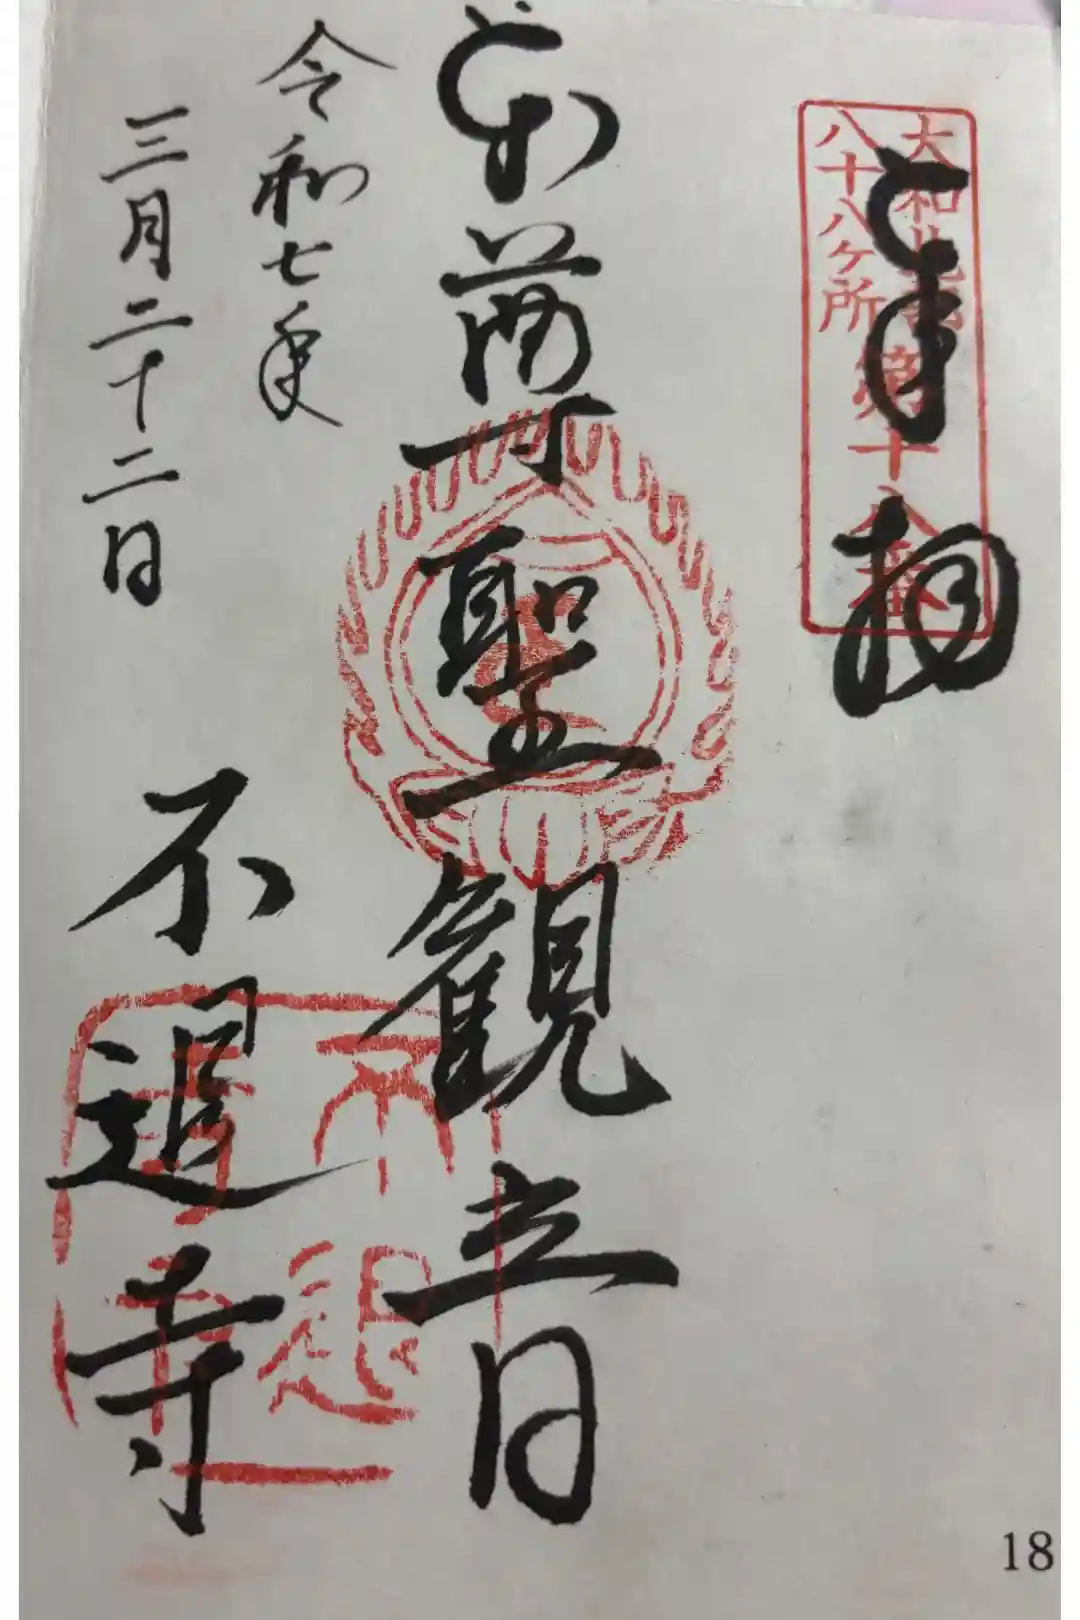 大和北部
八十八ヶ所
第十八番
奉拝
本尊聖観音
令和七年
三月二十二日
不退寺
不退
寺
18